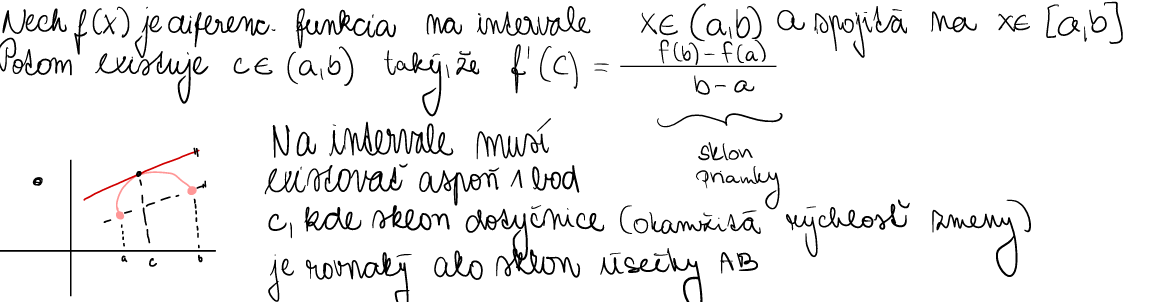 Nech f(x) je diferenc. funkcia na intervale x∈(a,b) a spojitá na x∈[a,b]
Potom existuje c∈(a,b) taký, že f'(c) = f(b)-f(a) / b-a
sklon
priamky
Na intervale musí
existovať aspoň 1 bod
c, kde sklon dotyčnice (okamžitá rýchlosť zmeny)
je rovnaký ako sklon úsečky AB
a c b